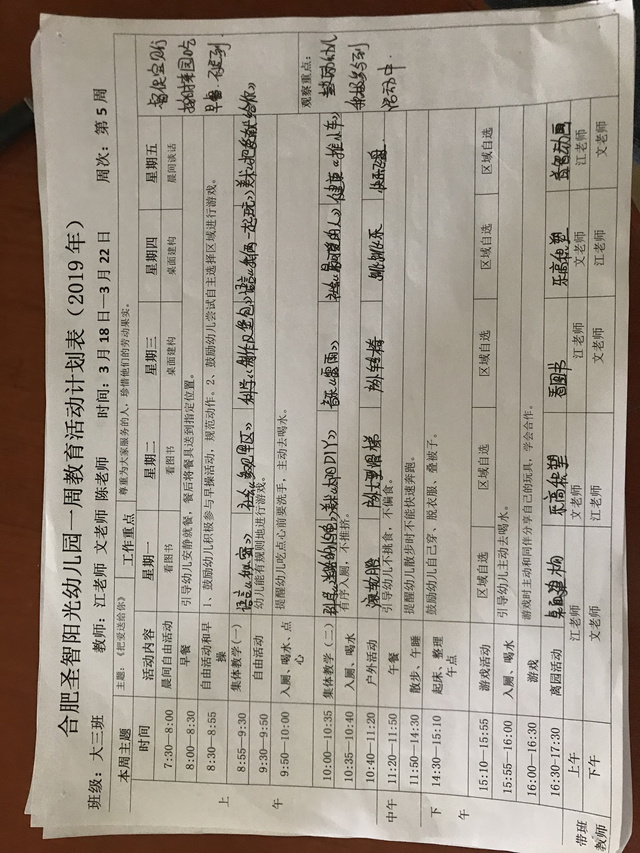 合肥圣智阳光幼儿园一周教育活动计划表（2019 年）
班级：大三班 教师：江老师 文老师 陈老师 时间：3 月 18 日—3 月 22 日 周次：第 5 周
本周主题 主题：《把爱送给你》 工作重点 尊重为大家服务的人，珍惜他们的劳动果实。
时间 活动内容 星期一 星期二 星期三 星期四 星期五
7:30—8:00 晨间自由活动 看图书 看图书 桌面建构 桌面建构 晨间谈话
8:00—8:30 早餐 引导幼儿安静就餐，餐后将餐具送到指定位置。
8:30—8:55 自由活动和早操 1、鼓励幼儿积极参与早操活动，规范动作。2、鼓励幼儿尝试自主选择区域进行游戏。
上午
8:55—9:30 集体教学（一）
9:30—9:50 自由活动 幼儿能有规则地进行游戏。
9:50—10:00 入厕、喝水、点心 提醒幼儿吃点心前要洗手，主动去喝水。
10:00—10:35 集体教学（二） 健康《推小车》
10:35—10:40 入厕、喝水 有序入厕，不推挤。
10:40—11:20 户外活动
中午
11:20—11:50 午餐 引导幼儿不挑食，不偏食。
11:50—14:30 散步、午睡 提醒幼儿散步时不能快速奔跑。
下午
14:30—15:10 起床、整理午点 鼓励幼儿自己穿、脱衣服、叠被子。
15:10—15:55 游戏活动 区域自选 区域自选 区域自选 区域自选 区域自选
15:55—16:00 入厕、喝水 引导幼儿主动去喝水。
16:00—16:30 游戏 游戏时主动和同伴分享自己的玩具，学会合作。
16:30-17:30 离园活动 桌面建构 乐高积塑 看图书 乐高积塑 益智动画
带班教师 上午 江老师 文老师 江老师 文老师 江老师
下午 文老师 江老师 文老师 江老师 文老师
督促宝贝们
按时来园吃
早餐.不迟到
观察重点：
鼓励幼儿
积极参与到
活动中.